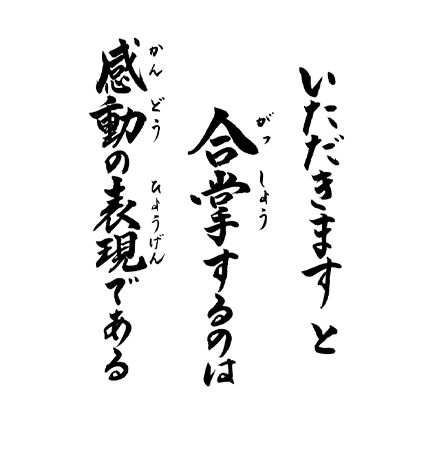 いただきますと
合掌するのは
がっしょう
感動の表現である
かんどう
ひょうげん